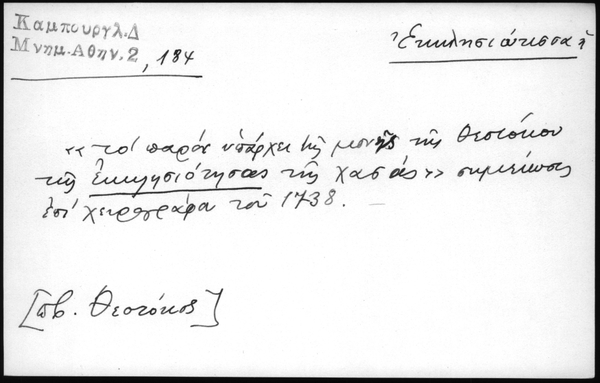 Καμπουργλ.Δ
Μνημ.Αθην.2, 184
Ἐκκλησιώτισσα ἡ
«τό παρόν ὑπάρχει τῆς μονῆς τῆς Θεοτόκου
τῆς Ἐκκλησιότησας τῆς χασάς» σημείωσις
ἐπί χειρογράφου τοῦ 1738.
[πβ. Θεοτόκος]